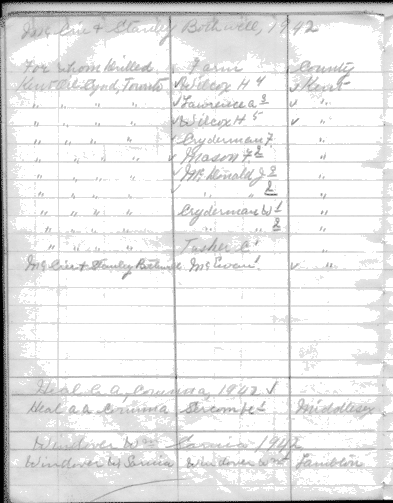 McCire & Stanley Bothwell, 1942
For whom Drilled Farm County
Kent Oil Synd, Toronto ✓ Wilcox H 4 ✓ Kent
" " " " ✓ Lawrence A 2 ✓ "
" " " " ✓ Wilcox H 5 ✓ "
" " " " ✓ Cryderman F. "
" " " " ✓ Mason F. 2 "
" " " " ✓ McDonald J 2 "
" " " " ✓ " " 2 "
" " " " Cryderman W 1 "
" " " " " " 2 "
" " " " Tasker C 1 "
McCire & Stanley Bothwell McEwan 1 ✓ "
Heal C. A. Corunna, 1942 ✓
Heal a a Corunna Sercombe 1 Middlesex
Windover Wm Sarnia 1942
Windover W Sarnia Windover Wm 1 Lambton